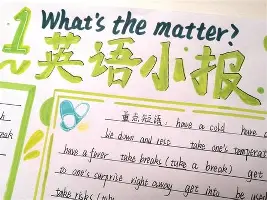 1
What's the matter?
英语小报
重点短语 have a cold have
lie down and rest take one's temperat
have a fever take breaks (take a break) get
to one's surprise right away get into be used
take risks
eak